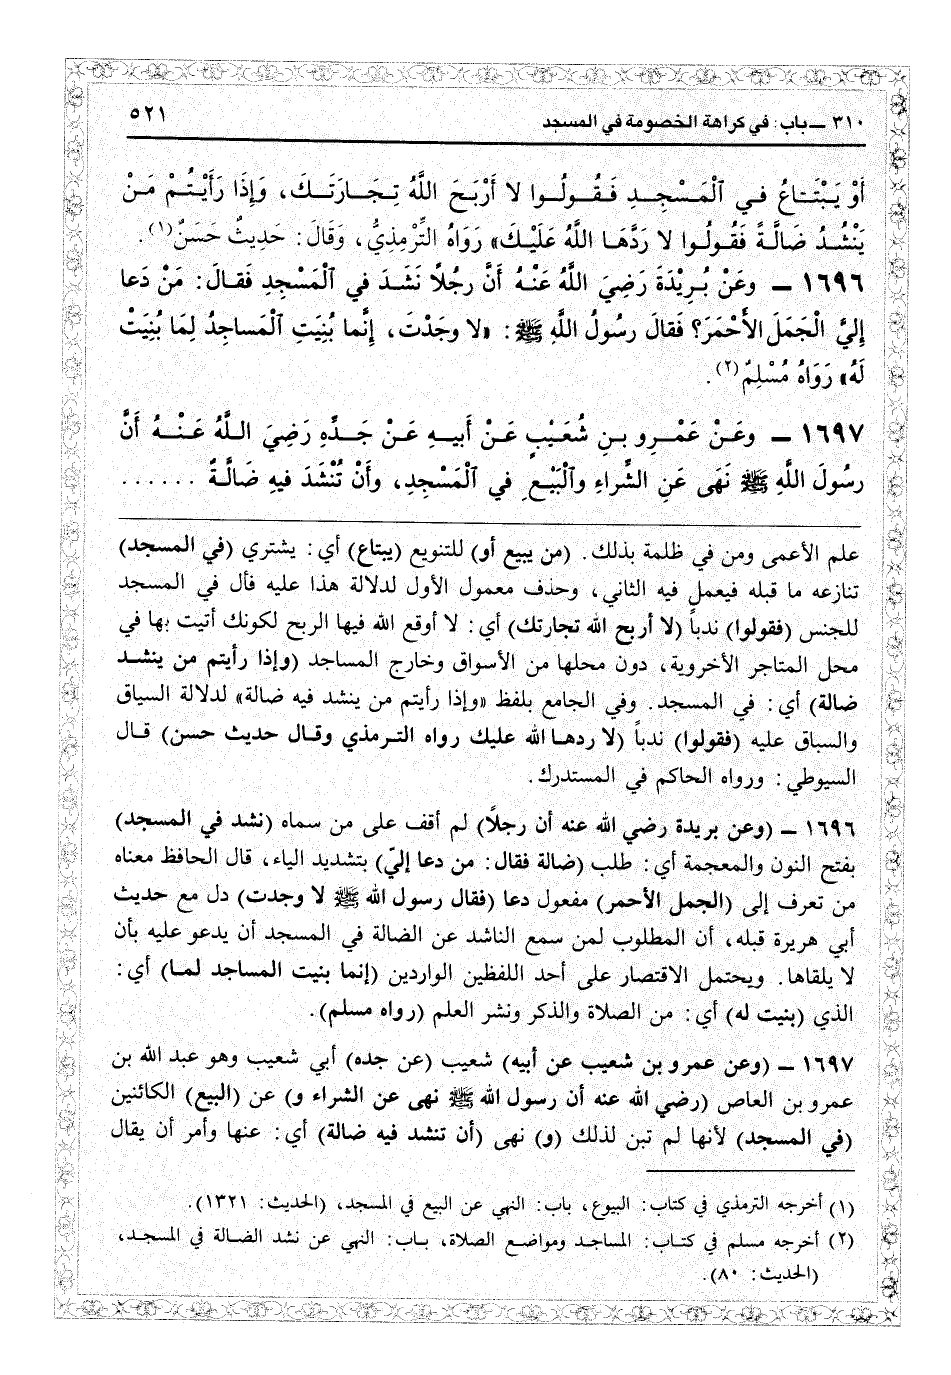 ٣١٠ ــ باب: في كراهة الخصومة في المسجد ٥٢١
أَوْ يَبْتَاعُ في الْمَسْجِدِ فَقُولُوا لا أَرْبَحَ اللَّهُ تِجَارَتَكَ، وَإِذَا رَأَيْتُمْ مَنْ
يَنْشُدُ ضَالَّةً فَقُولُوا لا رَدَّهَا اللَّهُ عَلَيْكَ» رَوَاهُ التِّرْمِذِيُّ، وَقَالَ: حَدِيثٌ حَسَنٌ(١).
١٦٩٦ ــ وعَنْ بُرِيْدَةَ رَضِيَ اللَّهُ عَنْهُ أَنَّ رجُلاً نَشَدَ في الْمَسْجِدِ فَقالَ: مَنْ دَعا
إليَّ الْجَمَلَ الأَحْمَرَ؟ فَقالَ رسُولُ اللَّهِ ﷺ: «لا وجَدْتَ، إنَّما بُنِيَتِ الْمَساجِدُ لِمَا بُنِيَتْ
لَهُ» رَوَاهُ مُسْلِمٌ(٢).
١٦٩٧ ــ وعَنْ عَمْرِو بنِ شُعَيْبٍ عَنْ أَبيهِ عَنْ جَدِّهِ رَضِيَ اللَّهُ عَنْهُ أَنَّ
رسُولَ اللَّهِ ﷺ نَهَى عَنِ الشِّراءِ والْبَيْعِ في الْمَسْجِدِ، وأَنْ تُنْشَدَ فيهِ ضَالَّةٌ ......
علم الأعمى ومن في ظلمة بذلك. (من يبيع أو) للتنويع (يبتاع) أي: يشتري (في المسجد)
تنازعه ما قبله فيعمل فيه الثاني، وحذف معمول الأول لدلالة هذا عليه فأل في المسجد
للجنس (فقولوا) ندباً (لا أربح الله تجارتك) أي: لا أوقع الله فيها الربح لكونك أتيت بها في
محل المتاجر الأخروية، دون محلها من الأسواق وخارج المساجد (وإذا رأيتم من ينشد
ضالة) أي: في المسجد. وفي الجامع بلفظ «وإذا رأيتم من ينشد فيه ضالة» لدلالة السياق
والسباق عليه (فقولوا) ندباً (لا ردها الله عليك رواه الترمذي وقال حديث حسن) قال
السيوطي: ورواه الحاكم في المستدرك.
١٦٩٦ ــ (وعن بريدة رضي الله عنه أن رجلاً) لم أقف على من سماه (نشد في المسجد)
بفتح النون والمعجمة أي: طلب (ضالة فقال: من دعا إليّ) بتشديد الياء، قال الحافظ معناه
من تعرف إلى (الجمل الأحمر) مفعول دعا (فقال رسول الله ﷺ لا وجدت) دل مع حديث
أبي هريرة قبله، أن المطلوب لمن سمع الناشد عن الضالة في المسجد أن يدعو عليه بأن
لا يلقاها. ويحتمل الاقتصار على أحد اللفظين الواردين (إنما بنيت المساجد لما) أي:
الذي (بنيت له) أي: من الصلاة والذكر ونشر العلم (رواه مسلم).
١٦٩٧ ــ (وعن عمرو بن شعيب عن أبيه) شعيب (عن جده) أبي شعيب وهو عبد الله بن
عمرو بن العاص (رضي الله عنه أن رسول الله ﷺ نهى عن الشراء و) عن (البيع) الكائنين
(في المسجد) لأنها لم تبن لذلك (و) نهى (أن تنشد فيه ضالة) أي: عنها وأمر أن يقال
(١) أخرجه الترمذي في كتاب: البيوع، باب: النهي عن البيع في المسجد، (الحديث: ١٣٢١).
(٢) أخرجه مسلم في كتاب: المساجد ومواضع الصلاة، باب: النهي عن نشد الضالة في المسجد،
(الحديث: ٨٠).